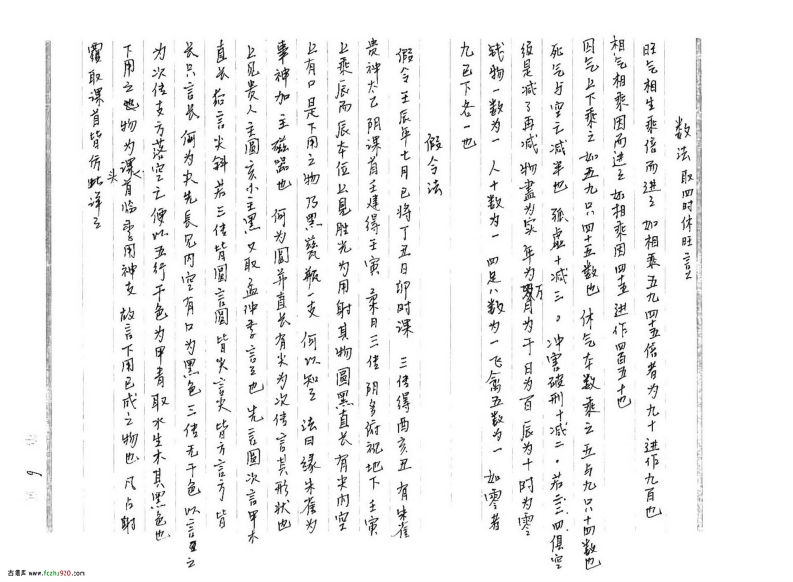 数法 取四时休旺言之
旺气相生乘倍而进之 如相乘五九四十五倍者为九十进作九百也
相气相乘因而进之 如相乘因四十五进作四百五十也
囚气上下乘之 如五九只四十五数也 休气本数乘之 五与九只十四数也
死气与空亡减半也 孤虚十减三。冲害破刑十减二。若三四俱空
彼是减了再减 物尽为灾 年为万月为千日为百辰为十时为零
钱物一数为一 人十数为一 四足八数为一 飞禽五数为一 如零者
九已下各一也
假令法
假令壬辰年七月巳将丁丑日卯时课 三传得酉亥丑 有朱雀
贵神太乙 阴课首壬建得壬寅 柔日三传阴多俯视地下 壬寅
上乘辰而辰本位上见胜光为用 射其物圆黑直长有尖内空
上有口 是下用之物乃黑瓷瓶一支 何以知之 法曰缘朱雀为
事神加土磁器也 何为圆并直长有尖 为次传言其形状也
上见贵人主圆 亥小主黑 又取孟冲季言之也 先言圆次言甲木
直长 后言尖斜 若三传皆圆言圆 皆尖言尖 皆方言方 皆
长只言长 何为火先长见内空有口为黑色 三传无干色 以言之
为次传支方落空亡 便以五行干色为甲青 取水生木其黑色也
下用之物为课首临季用神支 故言下用已成之物也 凡占射
覆取课首皆仿此详之
6
古籍库 www.fczhu920.com